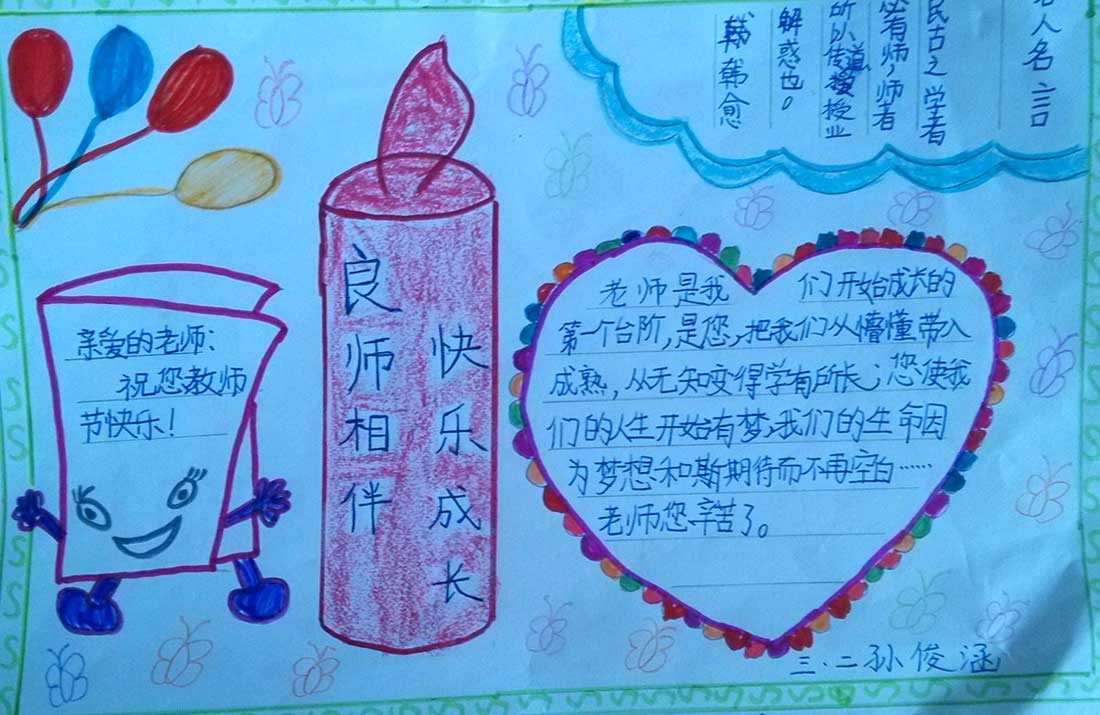 人名言
民古之学者
必有师,师者
所以传道授授业
解惑也。
韩韩愈
亲爱的老师:
祝您教师
节快乐!
良师相伴
快乐成长
老师是我们开始成长的
第一个台阶,是您,把我们从懵懂带入
成熟,从无知变得学有所长;您使我
们的人生开始有梦,我们的生命因
为梦想和斯期待而不再空白……
老师您辛苦了。
三.二孙俊涵